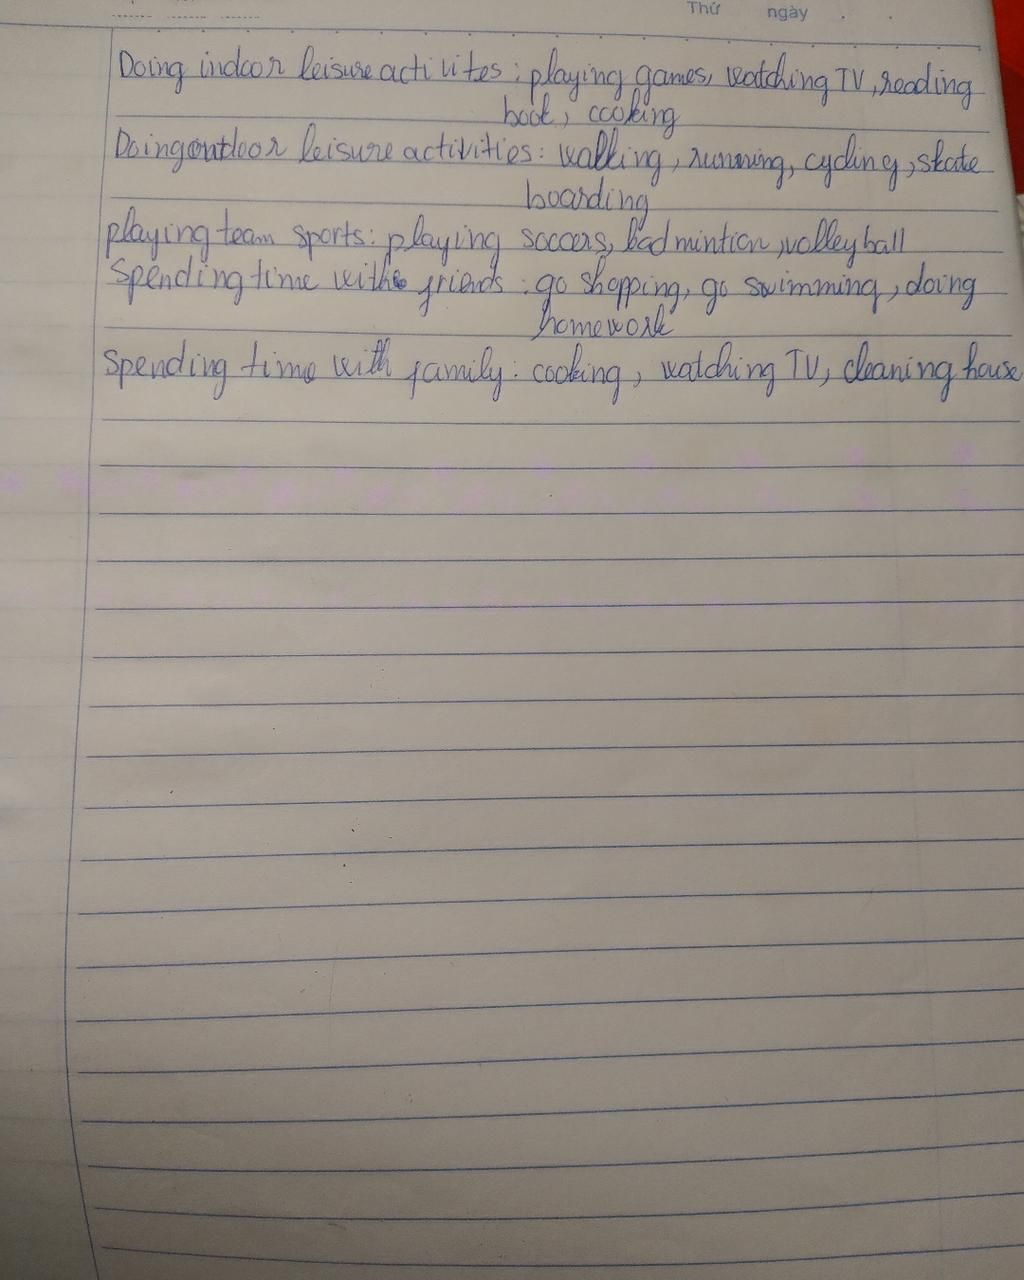 Thứ ngày
Doing indoor leisure activites : playing games, watching TV, reading
book, cooking
Doing outdoor leisure activities : walking, running, cycling, skate
boarding
playing team sports : playing soccers, badmintion, volleyball
Spending time with friends : go shopping, go swimming, doing
homework
Spending time with family : cooking, watching TV, cleaning house